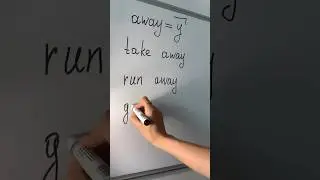 away = y
take away
run away
g